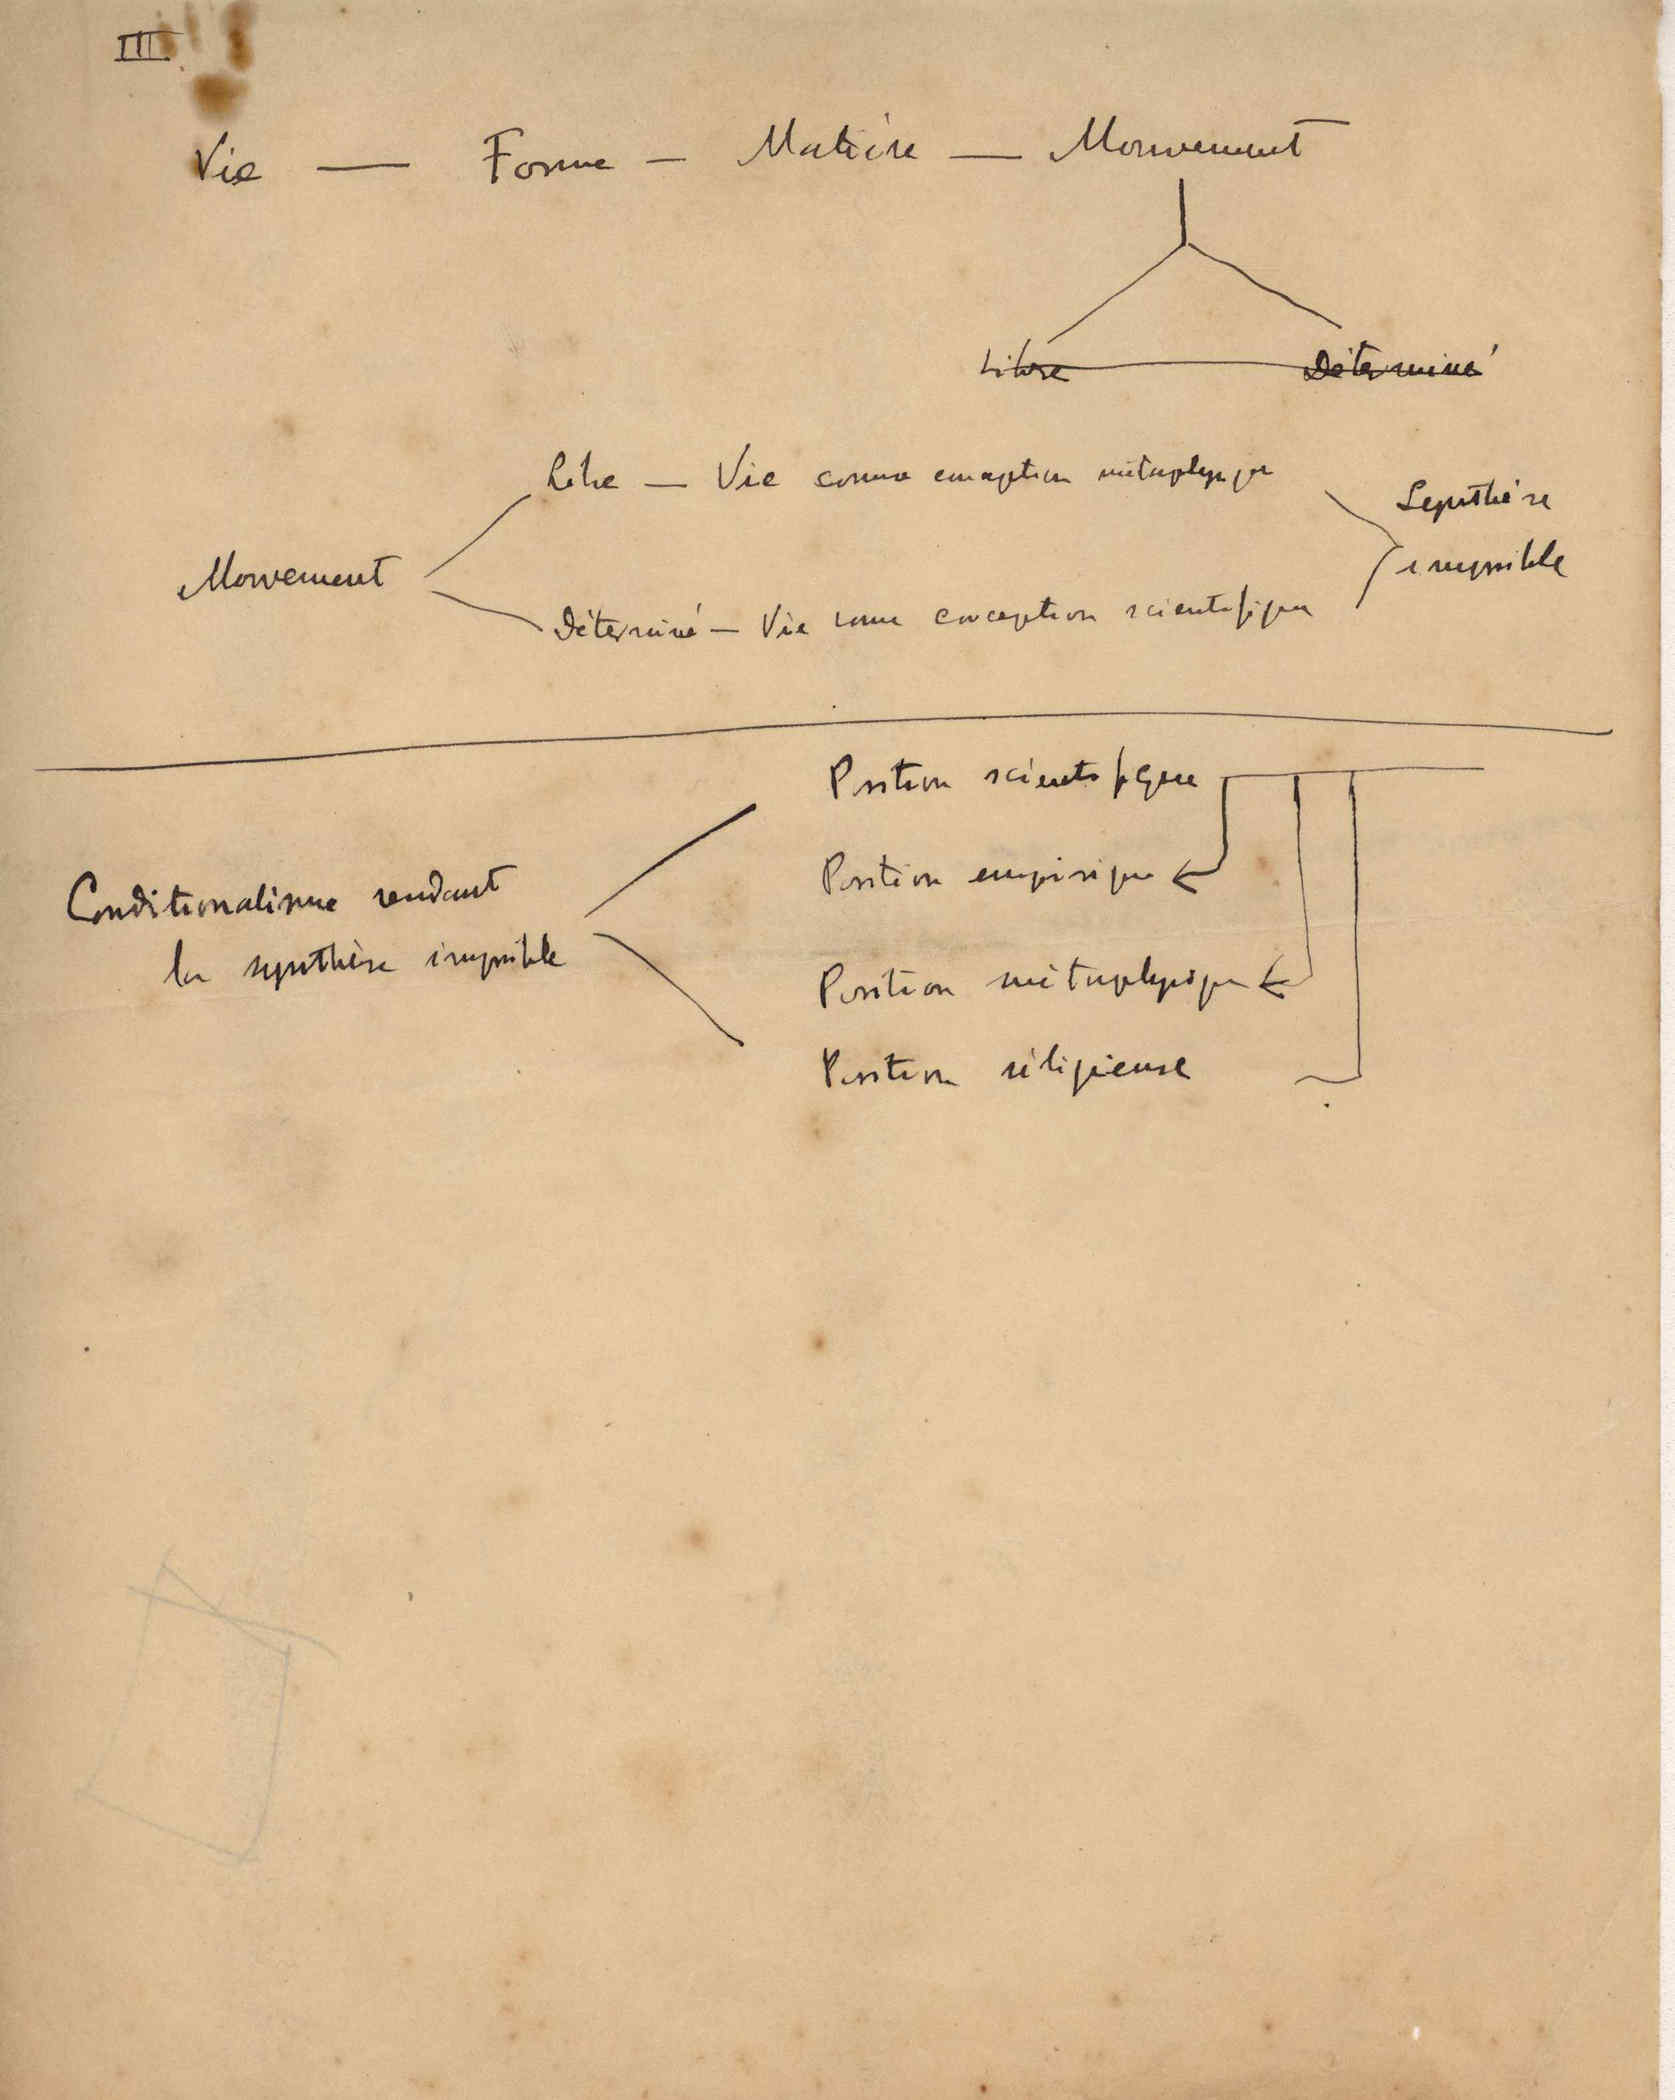 III
Vie — Forme — Matière — Mouvement
Libre Déterminé
Libre — Vie comme conception métaphysique
Synthèse
impossible
Mouvement
Déterminé — Vie comme conception scientifique
Position scientifique
Position empirique
Conditionalisme rendant
la synthèse impossible
Position métaphysique
Position réligieuse